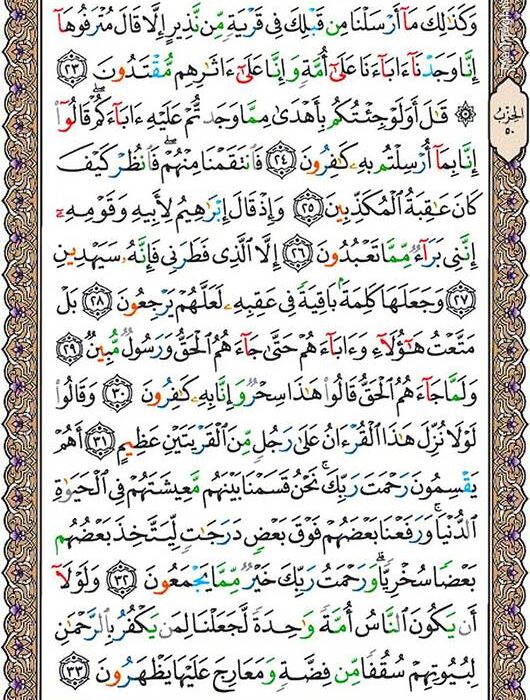 وَكَذَٰلِكَ مَآ أَرْسَلْنَا مِن قَبْلِكَ فِى قَرْيَةٍ مِّن نَّذِيرٍ إِلَّا قَالَ مُتْرَفُوهَآ
إِنَّا وَجَدْنَآ ءَابَآءَنَا عَلَىٰٓ أُمَّةٍ وَإِنَّا عَلَىٰٓ ءَاثَٰرِهِم مُّقْتَدُونَ ٢٣
۞ قَٰلَ أَوَلَوْ جِئْتُكُم بِأَهْدَىٰ مِمَّا وَجَدتُّمْ عَلَيْهِ ءَابَآءَكُمْ ۖ قَالُوٓا۟
إِنَّا بِمَآ أُرْسِلْتُم بِهِۦ كَٰفِرُونَ ٢٤ فَٱنتَقَمْنَا مِنْهُمْ ۖ فَٱنظُرْ كَيْفَ
كَانَ عَٰقِبَةُ ٱلْمُكَذِّبِينَ ٢٥ وَإِذْ قَالَ إِبْرَٰهِيمُ لِأَبِيهِ وَقَوْمِهِۦٓ
إِنَّنِى بَرَآءٌ مِّمَّا تَعْبُدُونَ ٢٦ إِلَّا ٱلَّذِى فَطَرَنِى فَإِنَّهُۥ سَيَهْدِينِ
٢٧ وَجَعَلَهَا كَلِمَةًۢ بَاقِيَةً فِى عَقِبِهِۦ لَعَلَّهُمْ يَرْجِعُونَ ٢٨ بَلْ
مَتَّعْتُ هَٰٓؤُلَآءِ وَءَابَآءَهُمْ حَتَّىٰ جَآءَهُمُ ٱلْحَقُّ وَرَسُولٌ مُّبِينٌ ٢٩
وَلَمَّا جَآءَهُمُ ٱلْحَقُّ قَالُوا۟ هَٰذَا سِحْرٌ وَإِنَّا بِهِۦ كَٰفِرُونَ ٣٠ وَقَالُوا۟
لَوْلَا نُزِّلَ هَٰذَا ٱلْقُرْءَانُ عَلَىٰ رَجُلٍ مِّنَ ٱلْقَرْيَتَيْنِ عَظِيمٍ ٣١ أَهُمْ
يَقْسِمُونَ رَحْمَتَ رَبِّكَ ۚ نَحْنُ قَسَمْنَا بَيْنَهُم مَّعِيشَتَهُمْ فِى ٱلْحَيَوٰةِ
ٱلدُّنْيَا ۚ وَرَفَعْنَا بَعْضَهُمْ فَوْقَ بَعْضٍ دَرَجَٰتٍ لِّيَتَّخِذَ بَعْضُهُم
بَعْضًا سُخْرِيًّا ۗ وَرَحْمَتُ رَبِّكَ خَيْرٌ مِّمَّا يَجْمَعُونَ ٣٢ وَلَوْلَآ
أَن يَكُونَ ٱلنَّاسُ أُمَّةً وَٰحِدَةً لَّجَعَلْنَا لِمَن يَكْفُرُ بِٱلرَّحْمَٰنِ
لِبُيُوتِهِمْ سُقُفًا مِّن فِضَّةٍ وَمَعَارِجَ عَلَيْهَا يَظْهَرُونَ ٣٣
الحزب
٥٠